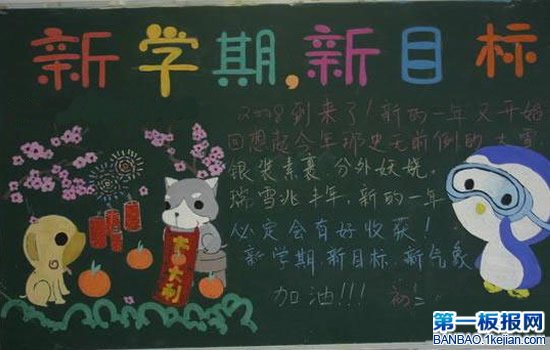 新学期,新目标
2008到来了!新的一年又开始
回想起今年那史无前例的大雪
银装素裹 分外妖娆,
瑞雪兆丰年,新的一年
必定会有好收获!
新学期,新目标,新气象
加油!!! 初二
大吉大利
第一板报网
BANBAO.1kejian.com